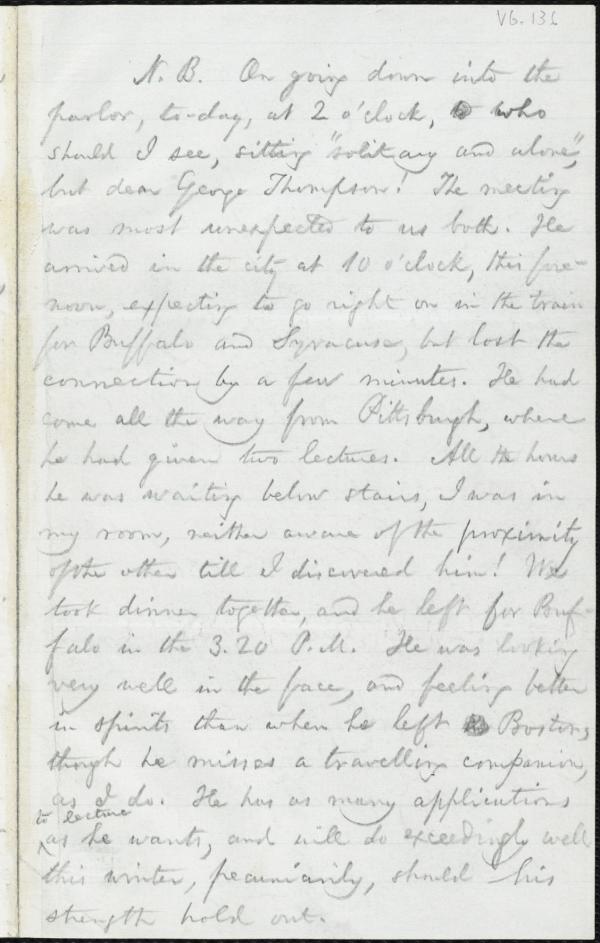 V6. 136
N. B. On going down into the
parlor, to-day, at 2 o'clock, who
should I see, sitting "solitary and alone",
but dear George Thompson! The meeting
was most unexpected to us both. He
arrived in the city at 10 o'clock, this fore-
noon, expecting to go right on in the train
for Buffalo and Syracuse, but lost the
connection by a few minutes. He had
come all the way from Pittsburgh, where
he had given two lectures. All the hours
he was waiting below stairs, I was in
my room, neither aware of the proximity
of the other till I discovered him! We
took dinner together, and he left for Buf-
falo in the 3.20 P.M. He was looking
very well in the face, and feeling better
in spirits than when he left Boston,
though he misses a travelling companion,
as I do. He has as many applications
to lecture
as he wants, and will do exceedingly well
this winter, pecuniarily, should his
strength hold out.